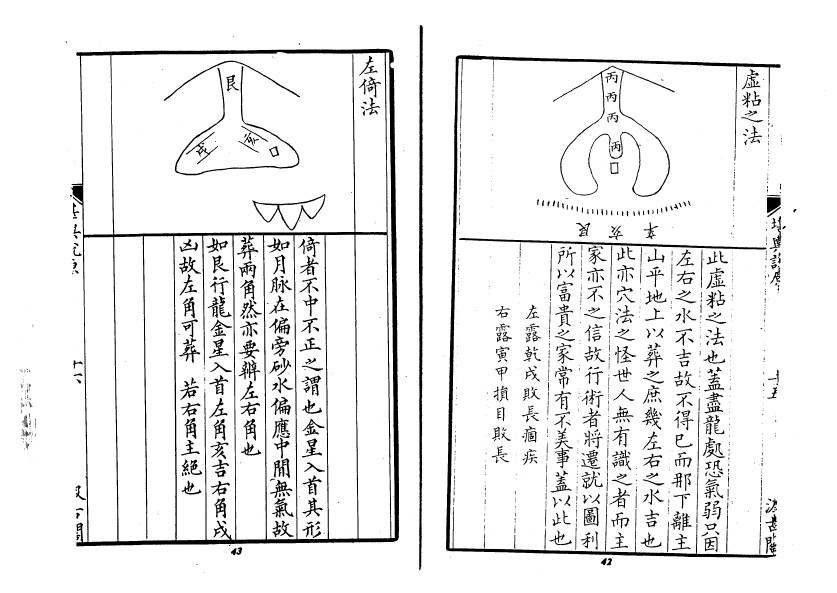 虛粘之法
丙
丙
丙
丙
辛 亥 艮
此虛粘之法也蓋盡龍處恐氣弱只因
左右之水不吉故不得已而那下離主
山平地上以葬之庶幾左右之水吉也
此亦穴法之怪世人無有識之者而主
家亦不之信故行術者將遷就以圖利
所以富貴之家常有不美事蓋以此也
左露乾戌敗長痼疾
右露寅甲損目敗長
42
左倚法
艮
亥
戌
倚者不中不正之謂也金星入首其形
如月脉在偏旁砂水偏應中間無氣故
葬兩角然亦要辦左右角也
如艮行龍金星入首左角亥吉右角戌
凶故左角可葬 若右角主絕也
43